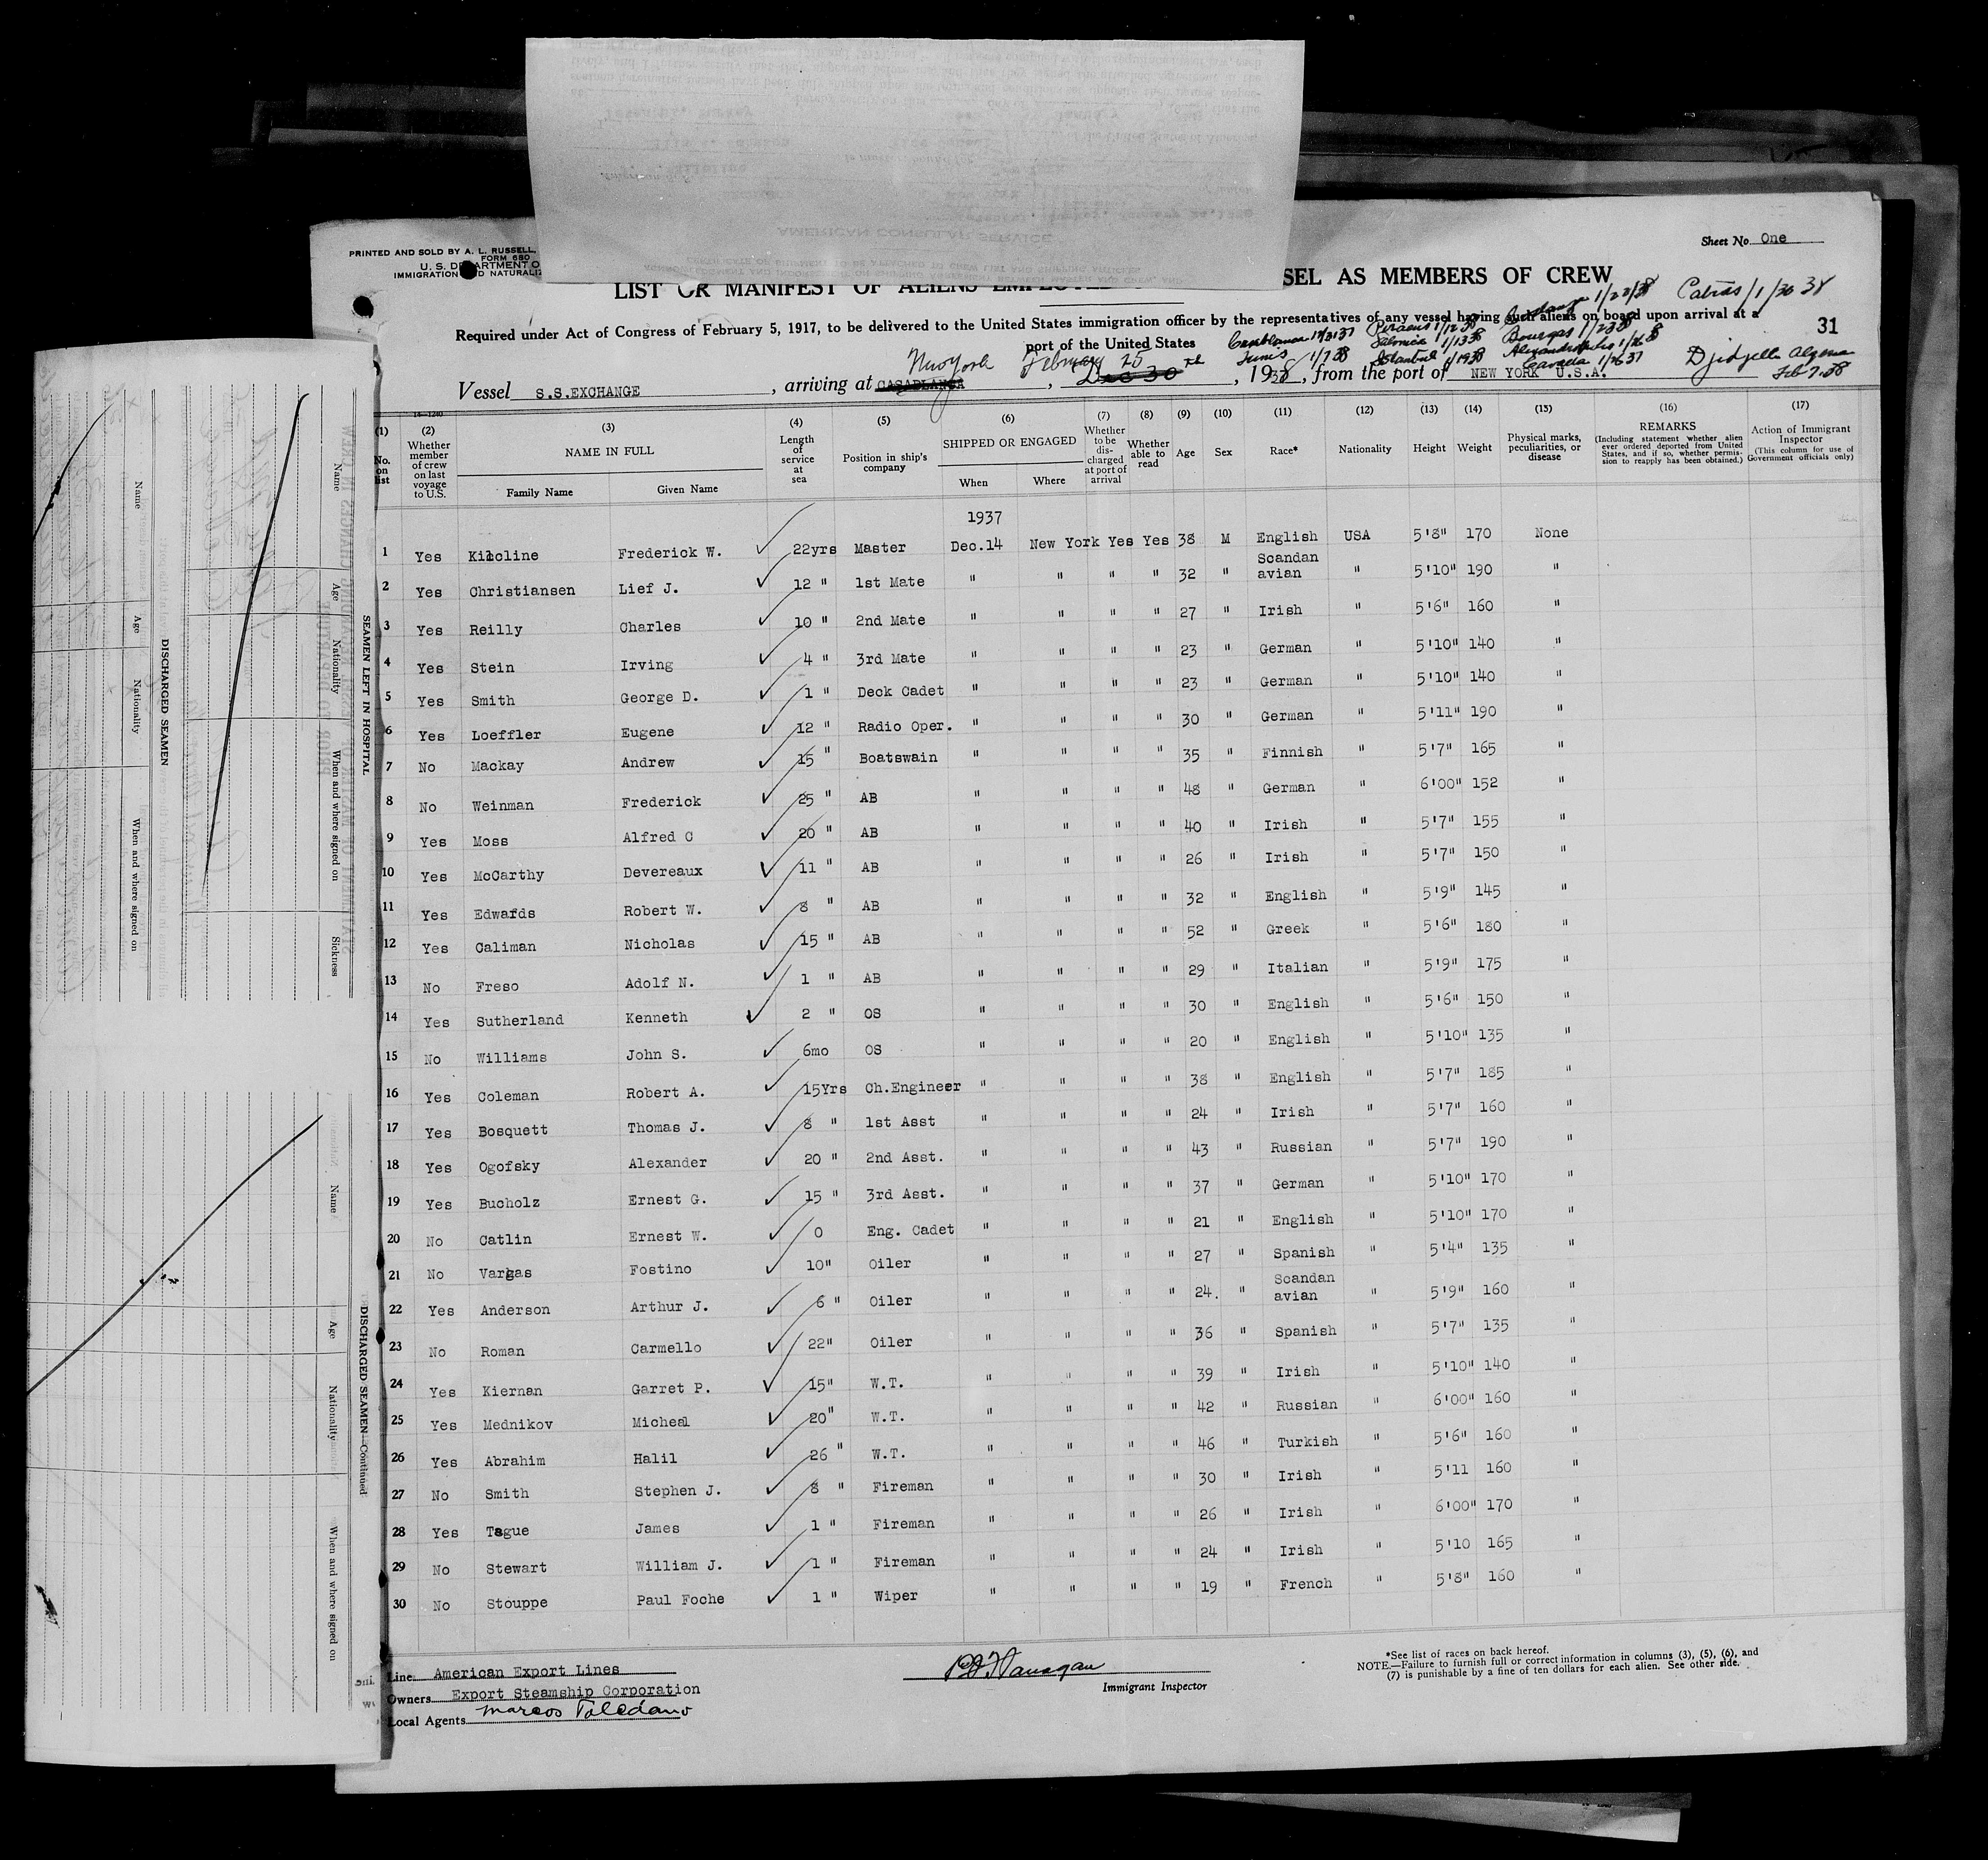 Sheet No. One
PRINTED AND SOLD BY A. L. RUSSELL,
FORM 680
U. S. DEPARTMENT O
IMMIGRATION ND NATURALIZ
LIST OR MANIFEST OF ALIENS EMPLOYED SEL AS MEMBERS OF CREW
Required under Act of Congress of February 5, 1917, to be delivered to the United States immigration officer by the representatives of any vessel having such aliens on board upon arrival at a
port of the United States
31
Casablanca 12/31/37
Tunis 1/7 38
Piraeus 1/12 38
Salonica 1/13 38
Istanbul 1/19 38
Constanza 1/22/38
Bourgas 1/23 38
Alexandropolis 1/26 38
Cavalla 1/26 37
Catras/1/30 38
Djidjella Algeria
Feb 7. 38
New York February 25 th
Vessel S.S.EXCHANGE, arriving at CASABLANCA, Dec 30, 1938, from the port of NEW YORK U.S.A.
14-1240
(1) No. on list
(2) Whether member of crew on last voyage to U.S.
(3) NAME IN FULL Family Name Given Name
(4) Length of service at sea
(5) Position in ship's company
(6) SHIPPED OR ENGAGED When Where
(7) Whether to be discharged at port of arrival
(8) Whether able to read
(9) Age
(10) Sex
(11) Race*
(12) Nationality
(13) Height
(14) Weight
(15) Physical marks, peculiarities, or disease
(16) REMARKS (Including statement whether alien ever ordered deported from United States, and if so, whether permission to reapply has been obtained.)
(17) Action of Immigrant Inspector (This column for use of Government officials only)
1937
1 Yes Kilcline Frederick W. 22yrs Master Dec.14 New York Yes Yes 38 M English USA 5'8" 170 None
2 Yes Christiansen Lief J. 12 " 1st Mate " " " " 32 " Scandan avian " 5'10" 190 "
3 Yes Reilly Charles 10 " 2nd Mate " " " " 27 " Irish " 5'6" 160 "
4 Yes Stein Irving 4 " 3rd Mate " " " " 23 " German " 5'10" 140 "
5 Yes Smith George D. 1 " Deck Cadet " " " " 23 " German " 5'10" 140 "
6 Yes Loeffler Eugene 12 " Radio Oper. " " " " 30 " German " 5'11" 190 "
7 No Mackay Andrew 15 " Boatswain " " " " 35 " Finnish " 5'7" 165 "
8 No Weinman Frederick 25 " AB " " " " 48 " German " 6'00" 152 "
9 Yes Moss Alfred C 20 " AB " " " " 40 " Irish " 5'7" 155 "
10 Yes McCarthy Devereaux 11 " AB " " " " 26 " Irish " 5'7" 150 "
11 Yes Edwards Robert W. 8 " AB " " " " 32 " English " 5'9" 145 "
12 Yes Caliman Nicholas 15 " AB " " " " 52 " Greek " 5'6" 180 "
13 No Freso Adolf N. 1 " AB " " " " 29 " Italian " 5'9" 175 "
14 Yes Sutherland Kenneth 2 " OS " " " " 30 " English " 5'6" 150 "
15 No Williams John S. 6mo OS " " " " 20 " English " 5'10" 135 "
16 Yes Coleman Robert A. 15Yrs Ch.Engineer " " " " 38 " English " 5'7" 185 "
17 Yes Bosquett Thomas J. 8 " 1st Asst " " " " 24 " Irish " 5'7" 160 "
18 Yes Ogofsky Alexander 20 " 2nd Asst. " " " " 43 " Russian " 5'7" 190 "
19 Yes Bucholz Ernest G. 15 " 3rd Asst. " " " " 37 " German " 5'10" 170 "
20 No Catlin Ernest W. 0 Eng. Cadet " " " " 21 " English " 5'10" 170 "
21 No Vargas Fostino 10" Oiler " " " " 27 " Spanish " 5'4" 135 "
22 Yes Anderson Arthur J. 6 " Oiler " " " " 24. " Scandan avian " 5'9" 160 "
23 No Roman Carmello 22" Oiler " " " " 36 " Spanish " 5'7" 135 "
24 Yes Kiernan Garret P. 15" W.T. " " " " 39 " Irish " 5'10" 140 "
25 Yes Mednikov Micheal 20" W.T. " " " " 42 " Russian " 6'00" 160 "
26 Yes Abrahim Halil 26 " W.T. " " " " 46 " Turkish " 5'6" 160 "
27 No Smith Stephen J. 8 " Fireman " " " " 30 " Irish " 5'11 160 "
28 Yes Tague James 1 " Fireman " " " " 26 " Irish " 6'00" 170 "
29 No Stewart William J. 1 " Fireman " " " " 24 " Irish " 5'10 165 "
30 No Stouppe Paul Foche 1 " Wiper " " " " 19 " French " 5'8" 160 "
Line American Export Lines
Owners Export Steamship Corporation
Local Agents Marcos Toledano
Immigrant Inspector
*See list of races on back hereof.
NOTE.—Failure to furnish full or correct information in columns (3), (5), (6), and
(7) is punishable by a fine of ten dollars for each alien. See other side.
SEAMEN LEFT IN HOSPITAL
Name Age Nationality When and where signed on Sickness
DISCHARGED SEAMEN
Name Age Nationality When and where signed on
DISCHARGED SEAMEN—Continued
Name Age Nationality When and where signed on
AMERICAN CONSULAR SERVICE